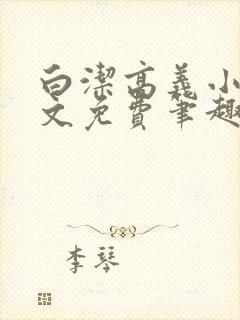 白潔高義小
文免費筆趣
李琴